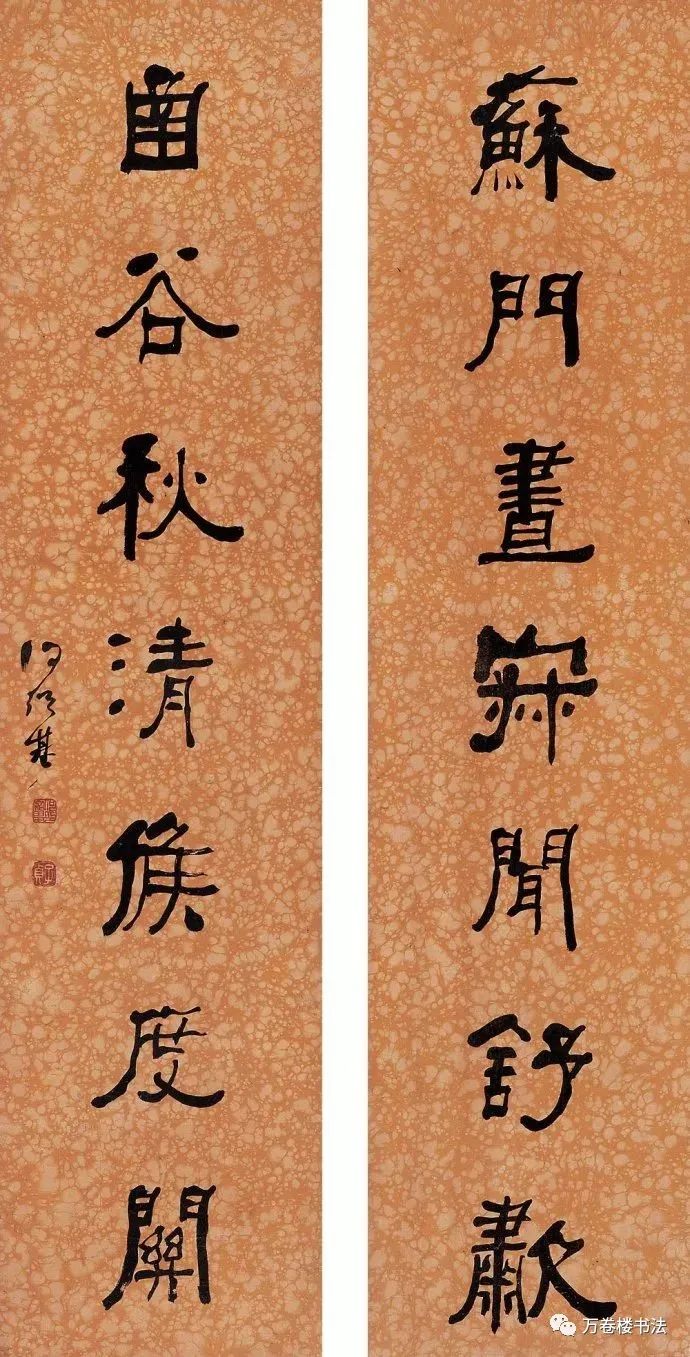 蘇門晝寂聞舒歗
函谷秋清候度關
何紹基
子貞
万卷楼书法